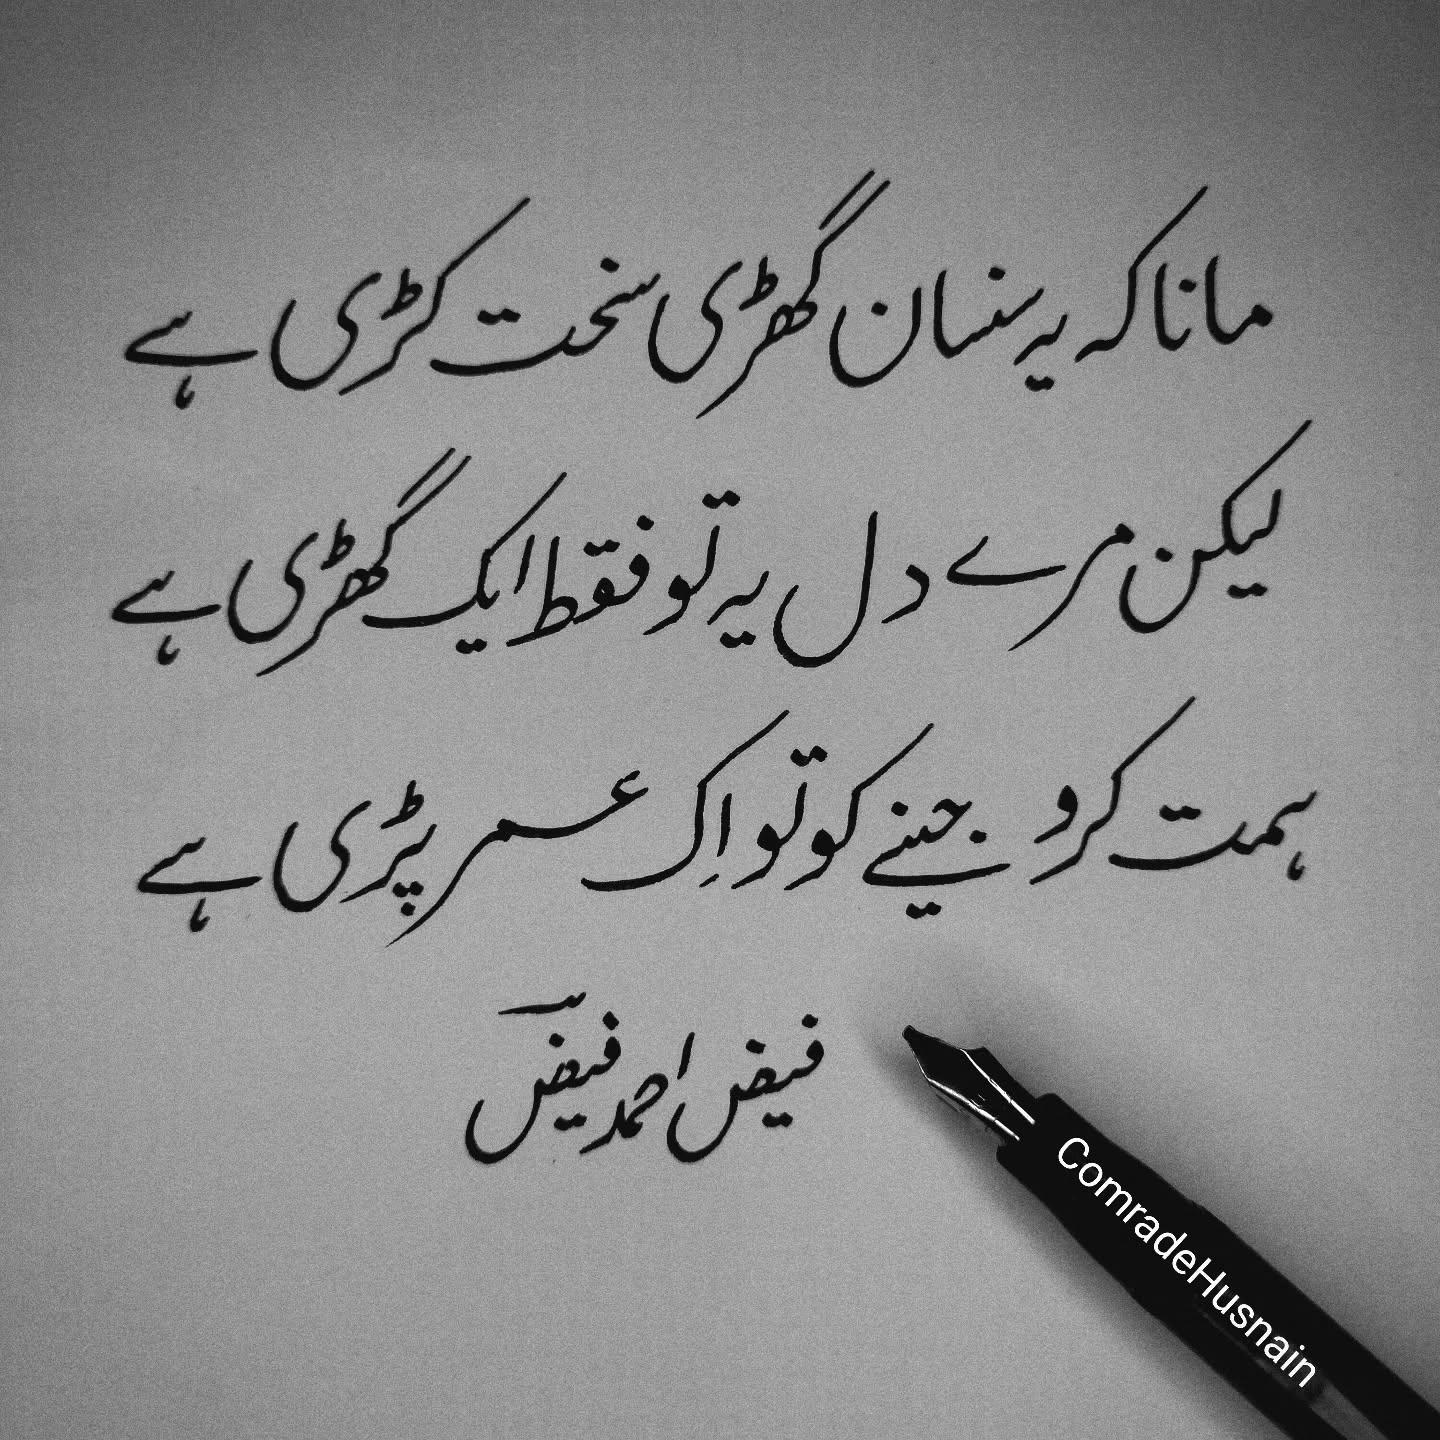 مانا کہ یہ سنسان گھڑی سخت کڑی ہے
لیکن مرے دل یہ تو فقط ایک گھڑی ہے
ہمت کرو جینے کو تو اِک عمر پڑی ہے
فیض احمد فیضؔ
ComradeHusnain